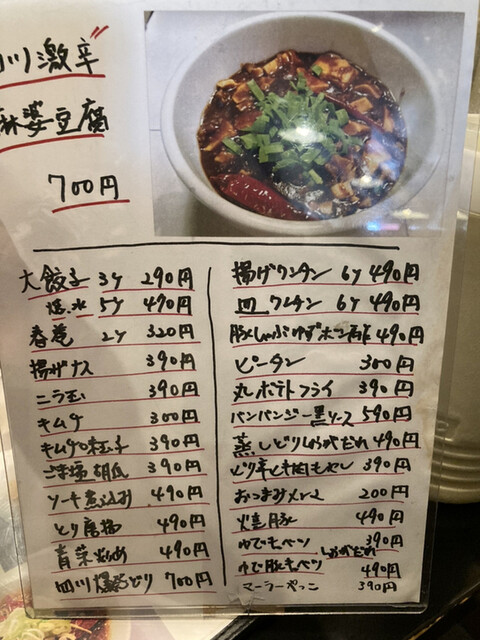 四川激辛
麻婆豆腐
700円
大餃子 3ケ 290円
焼.水 5ケ 490円
春巻 2ケ 320円
揚げナス 390円
ニラ玉 390円
キムチ 300円
キムチの玉子 390円
390円
煮込み 490円
とり唐揚 490円
青菜炒め 490円
四川 どり 700円
揚げワンタン 6ケ 490円
皿ワンタン 6ケ 490円
豚しゃぶゆずポン酢 490円
ピータン 300円
丸ポテトフライ 390円
バンバンジー黒ソース 590円
蒸しどりしょうがだれ 490円
390円
おつまみメンマ 200円
焼豚 490円
ゆでキャベツ 390円
しょうがだれ
ゆで豚キャベツ 490円
マーラーやっこ 390円